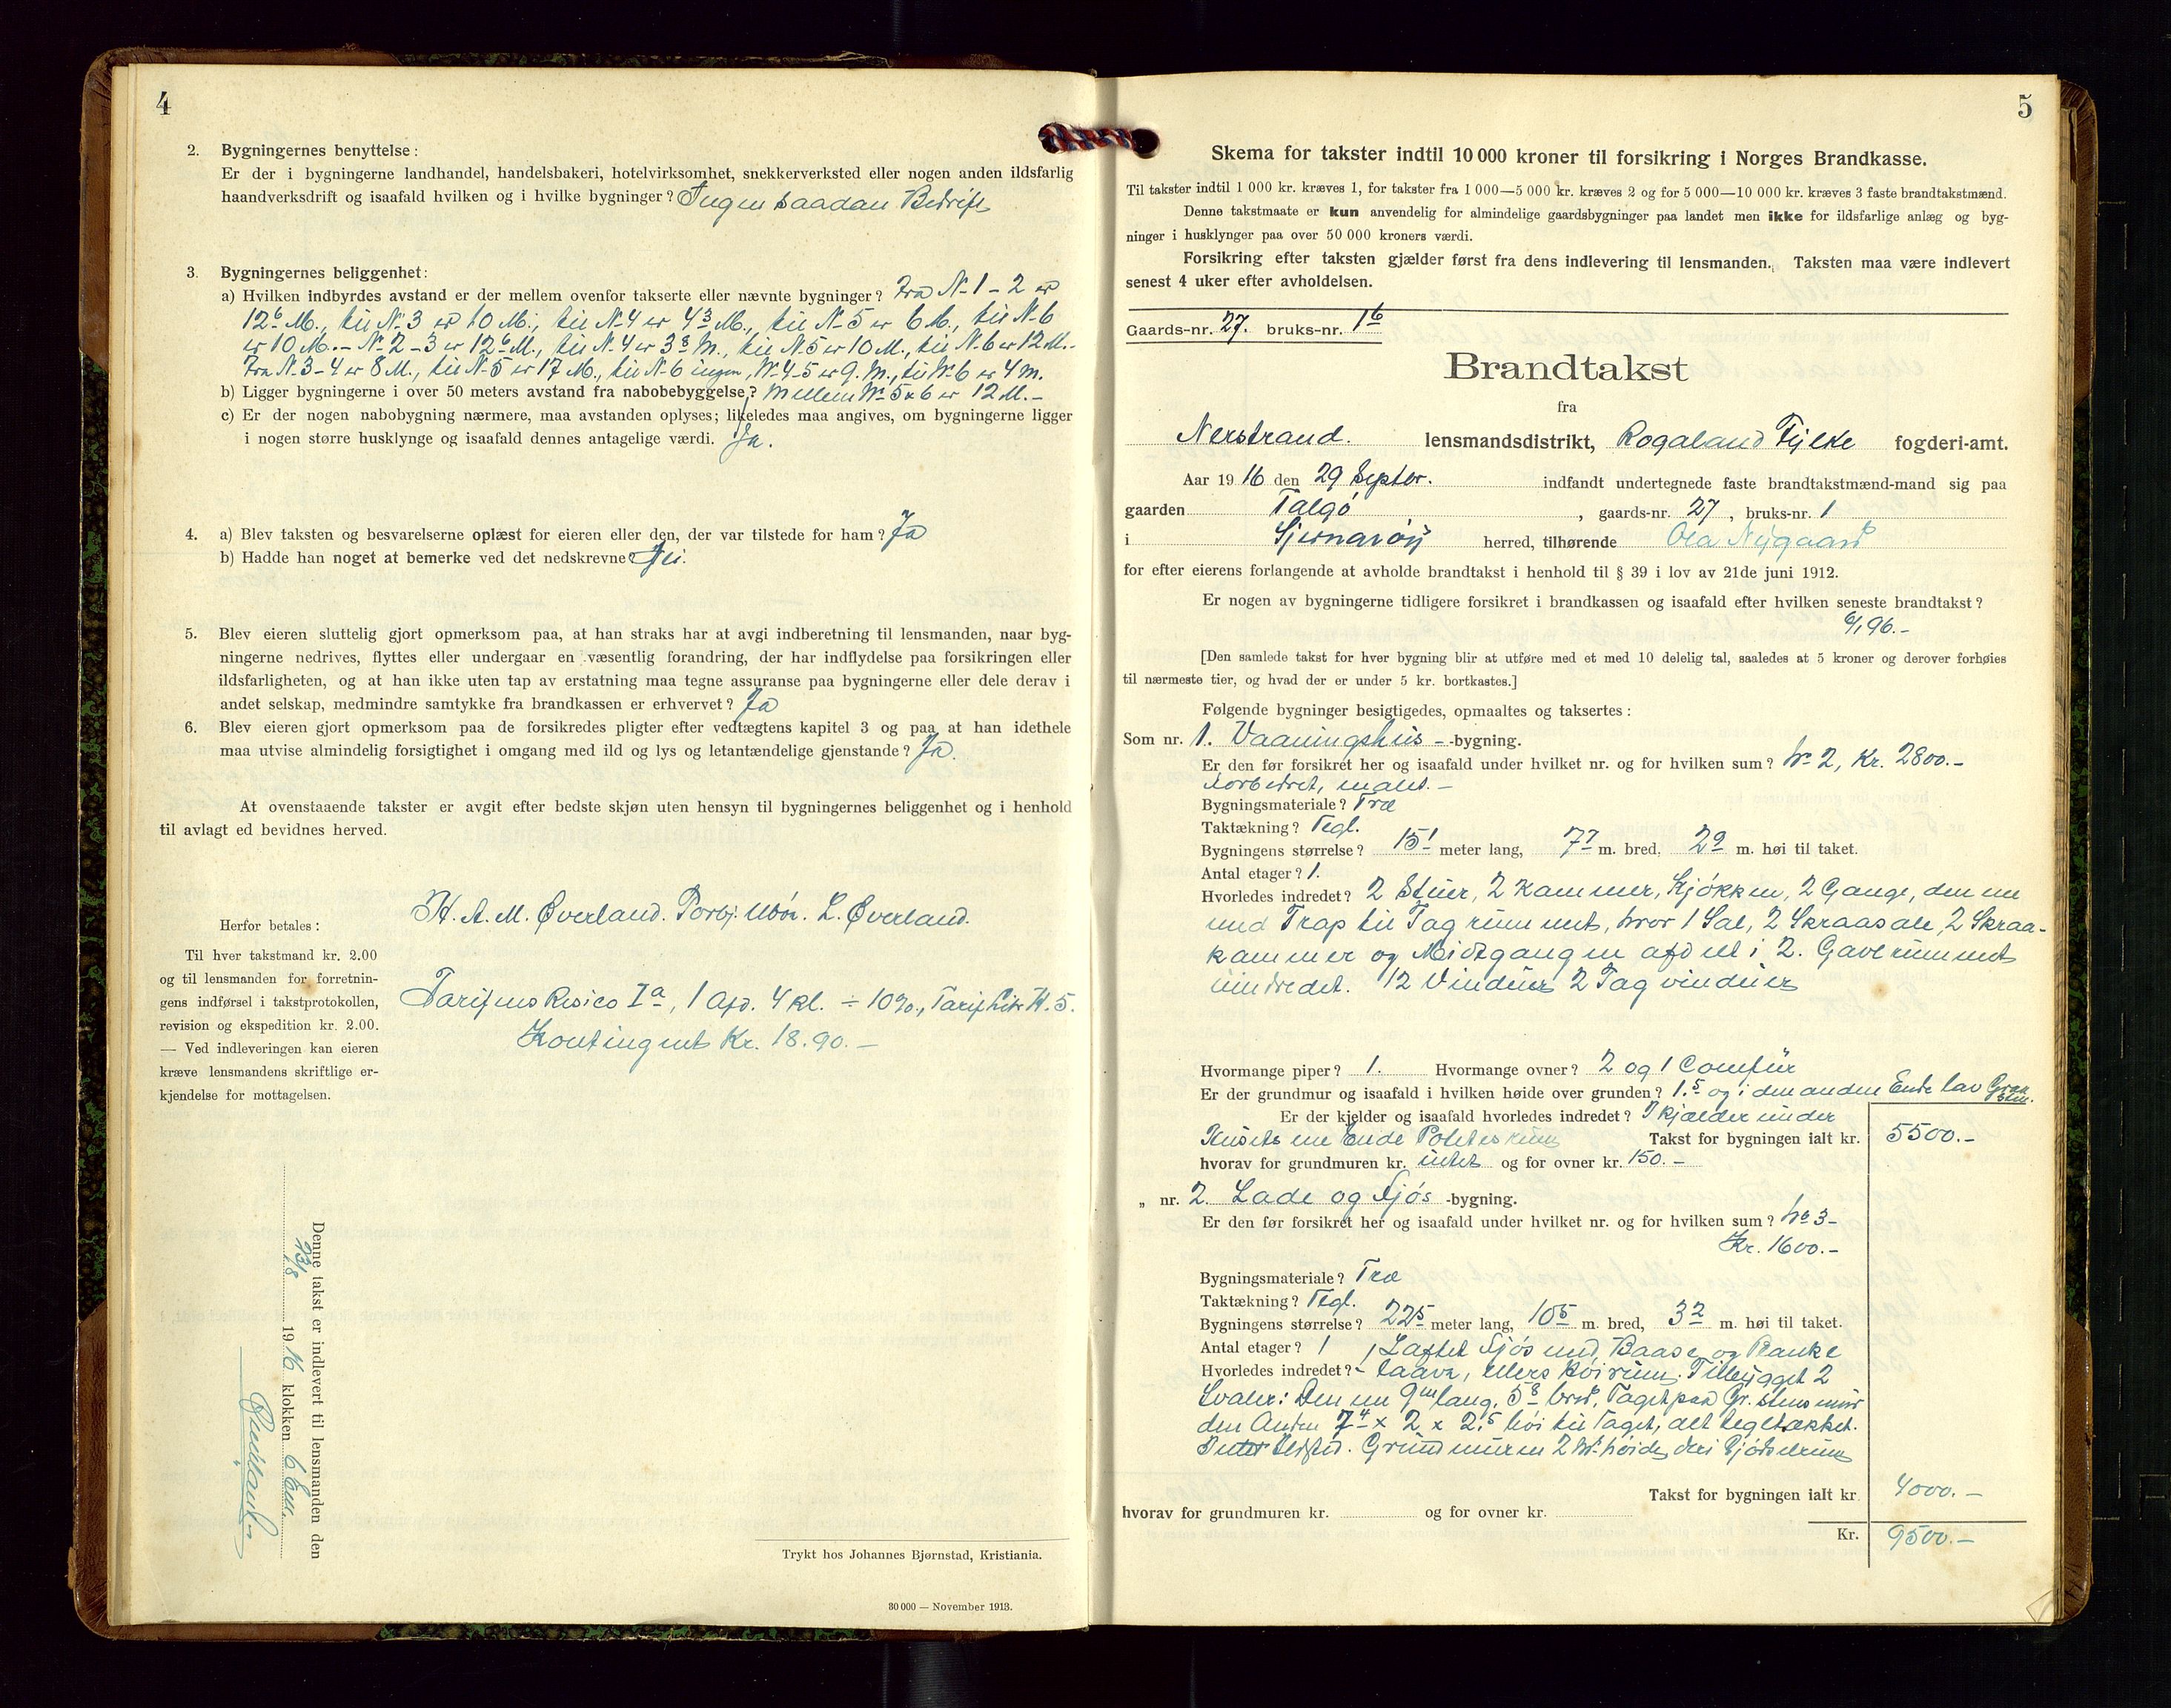 4
2. Bygningernes benyttelse:
Er der i bygningerne landhandel, handelsbakeri, hotelvirksomhet, snekkerverksted eller nogen anden ildsfarlig
haandverksdrift og isaafald hvilken og i hvilke bygninger? Ingen saadan Bedrift
3. Bygningernes beliggenhet:
a) Hvilken indbyrdes avstand er der mellem ovenfor takserte eller nævnte bygninger? Fra N. 1 - 2 er
12⁶ M., til N. 3 er 10 M., til N. 4 er 4³ M., til N. 5 er 6 M., til N. 6
er 10 M. - N. 2 - 3 er 12⁶ M., til N. 4 er 3⁸ M., til N. 5 er 10 M., til N. 6 er 12 M. -
Fra N. 3 - 4 er 8 M., til N. 5 er 17 M., til N. 6 ingen, N. 4-5 er 9. M., til N. 6 er 4 M.
b) Ligger bygningerne i over 50 meters avstand fra nabobebyggelse? Mellem N. 5 & 6 er 12 M. -
c) Er der nogen nabobygning nærmere, maa avstanden oplyses; likeledes maa angives, om bygningerne ligger
i nogen større husklynge og isaafald dennes antagelige værdi. Ja.
4. a) Blev taksten og besvarelserne oplæst for eieren eller den, der var tilstede for ham? Ja
b) Hadde han noget at bemerke ved det nedskrevne? Nei.
5. Blev eieren sluttelig gjort opmerksom paa, at han straks har at avgi indberetning til lensmanden, naar byg-
ningerne nedrives, flyttes eller undergaar en væsentlig forandring, der har indflydelse paa forsikringen eller
ildsfarligheten, og at han ikke uten tap av erstatning maa tegne assuranse paa bygningerne eller dele derav i
andet selskap, medmindre samtykke fra brandkassen er erhvervet? Ja
6. Blev eieren gjort opmerksom paa de forsikredes pligter efter vedtægtens kapitel 3 og paa at han idethele
maa utvise almindelig forsigtighet i omgang med ild og lys og letantændelige gjenstande? Ja.
At ovenstaaende takster er avgit efter bedste skjøn uten hensyn til bygningernes beliggenhet og i henhold
til avlagt ed bevidnes herved.
H. A. M. Øverland. L. Øverland.
Herfor betales:
Til hver takstmand kr. 2.00
og til lensmanden for forretnin-
gens indførsel i takstprotokollen,
revision og ekspedition kr. 2.00.
— Ved indleveringen kan eieren
kræve lensmandens skriftlige er-
kjendelse for mottagelsen.
Tarifens Risico I a, 1 Afd. 4 kl. ÷ 10%, Tarif Litr H. 5.
Kontingent Kr. 18.90. -
Denne takst er indlevert til lensmanden den
19 16 klokken 6 Em.
Trykt hos Johannes Bjørnstad, Kristiania.
30 000 — November 1913.
5
Skema for takster indtil 10 000 kroner til forsikring i Norges Brandkasse.
Til takster indtil 1 000 kr. kræves 1, for takster fra 1 000—5 000 kr. kræves 2 og for 5 000—10 000 kr. kræves 3 faste brandtakstmænd.
Denne takstmaate er kun anvendelig for almindelige gaardsbygninger paa landet men ikke for ildsfarlige anlæg og byg-
ninger i husklynger paa over 50 000 kroners værdi.
Forsikring efter taksten gjælder først fra dens indlevering til lensmanden. Taksten maa være indlevert
senest 4 uker efter avholdelsen.
Gaards-nr. 27. bruks-nr. 1 b
Brandtakst
fra
Nerstrand. lensmandsdistrikt, Rogaland Fylke fogderi-amt.
Aar 19 16 den 29 Septbr. indfandt undertegnede faste brandtakstmænd-mand sig paa
gaarden Talgö, gaards-nr. 27, bruks-nr. 1
i Sjernarøÿ herred, tilhørende Ola Nygaard
for efter eierens forlangende at avholde brandtakst i henhold til § 39 i lov av 21de juni 1912.
Er nogen av bygningerne tidligere forsikret i brandkassen og isaafald efter hvilken seneste brandtakst?
6/1 96. -
[Den samlede takst for hver bygning blir at utføre med et med 10 delelig tal, saaledes at 5 kroner og derover forhøies
til nærmeste tier, og hvad der er under 5 kr. bortkastes.]
Følgende bygninger besigtigedes, opmaaltes og taksertes:
Som nr. 1. Vaaningshus - -bygning.
Er den før forsikret her og isaafald under hvilket nr. og for hvilken sum? No 2, Kr. 2800. -
Forbedret, malet. -
Bygningsmateriale? Træ
Taktækning? Tegl.
Bygningens størrelse? 15¹ meter lang, 7⁷ m. bred, 2⁹ m. høi til taket.
Antal etager? 1.
Hvorledes indredet? 2 Stuer, 2 Kammer, Kjøkken, 2 Gange, den ene
med Trap til Tagrummet, hvor 1 Sal, 2 Skraasale, 2 Skraa-
kammer og Midtgangen afdelt i 2. Gavlrummet
uindredet. 12 Vinduer 2 Tagvinduer
Hvormange piper? 1. Hvormange ovner? 2 og 1 Comfür
Er der grundmur og isaafald i hvilken høide over grunden? 1.⁵ og i den anden Ende lav Graasten.
Er der kjelder og isaafald hvorledes indredet? I kjælder under
Husets ene Ende Potetesrum Takst for bygningen ialt kr. 5500. -
hvorav for grundmuren kr. intet og for ovner kr. 150. -
„ nr. 2. Lade og Fjøs -bygning.
Er den før forsikret her og isaafald under hvilket nr. og for hvilken sum? No 3 -
Kr. 1600. -
Bygningsmateriale? Træ
Taktækning? Tegl.
Bygningens størrelse? 22⁵ meter lang, 10⁵ m. bred, 3² m. høi til taket.
Antal etager? 1 / Laftet Fjøs med Baase og Planke
Hvorledes indredet? - laave, ellers Høirum. Tilbygget 2
Svaler: Den ene 9 m lang, 5⁸ bred, Taget paa Gr. stens mur
den Anden 7⁴ x 2 x 2.⁵ høi til Taget, alt tegltækket.
Intet Ildsted. Grundmuren 2 M. høide, deri Gjødselrum
Takst for bygningen ialt kr 4000. -
hvorav for grundmuren kr. og for ovner kr.
Kr. 9500. -